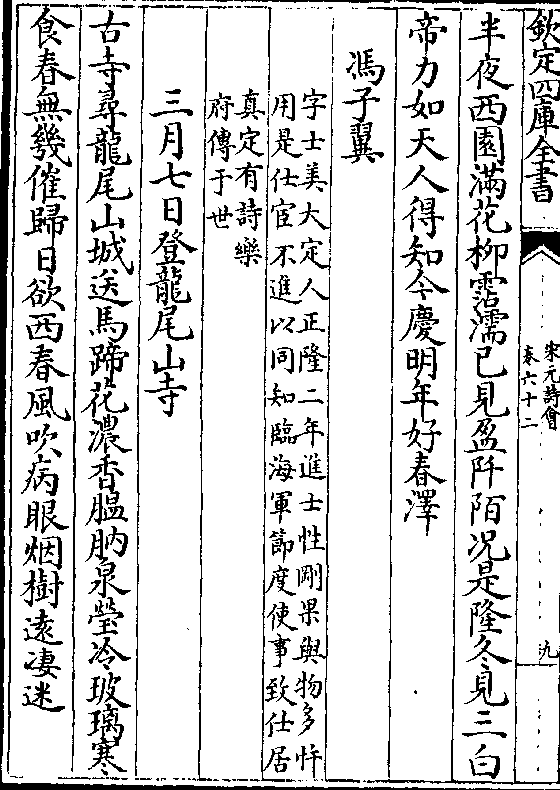 欽定四庫全書
宋元詩會
卷六十二
九
半夜西園滿花柳霑濡已見盈阡陌况是隆冬見三白
帝力如天人得知今慶明年好春澤
馮子翼
字士美大定人正隆二年進士性剛果與物多忤
用是仕宦不進以同知臨海軍節度使事致仕居
真定有詩樂
府傳于世
三月七日登龍尾山寺
古寺尋龍尾山城送馬蹄花濃香膃肭泉瑩冷玻璃寒
食春無幾催歸日欲西春風吹病眼烟樹遠凄迷